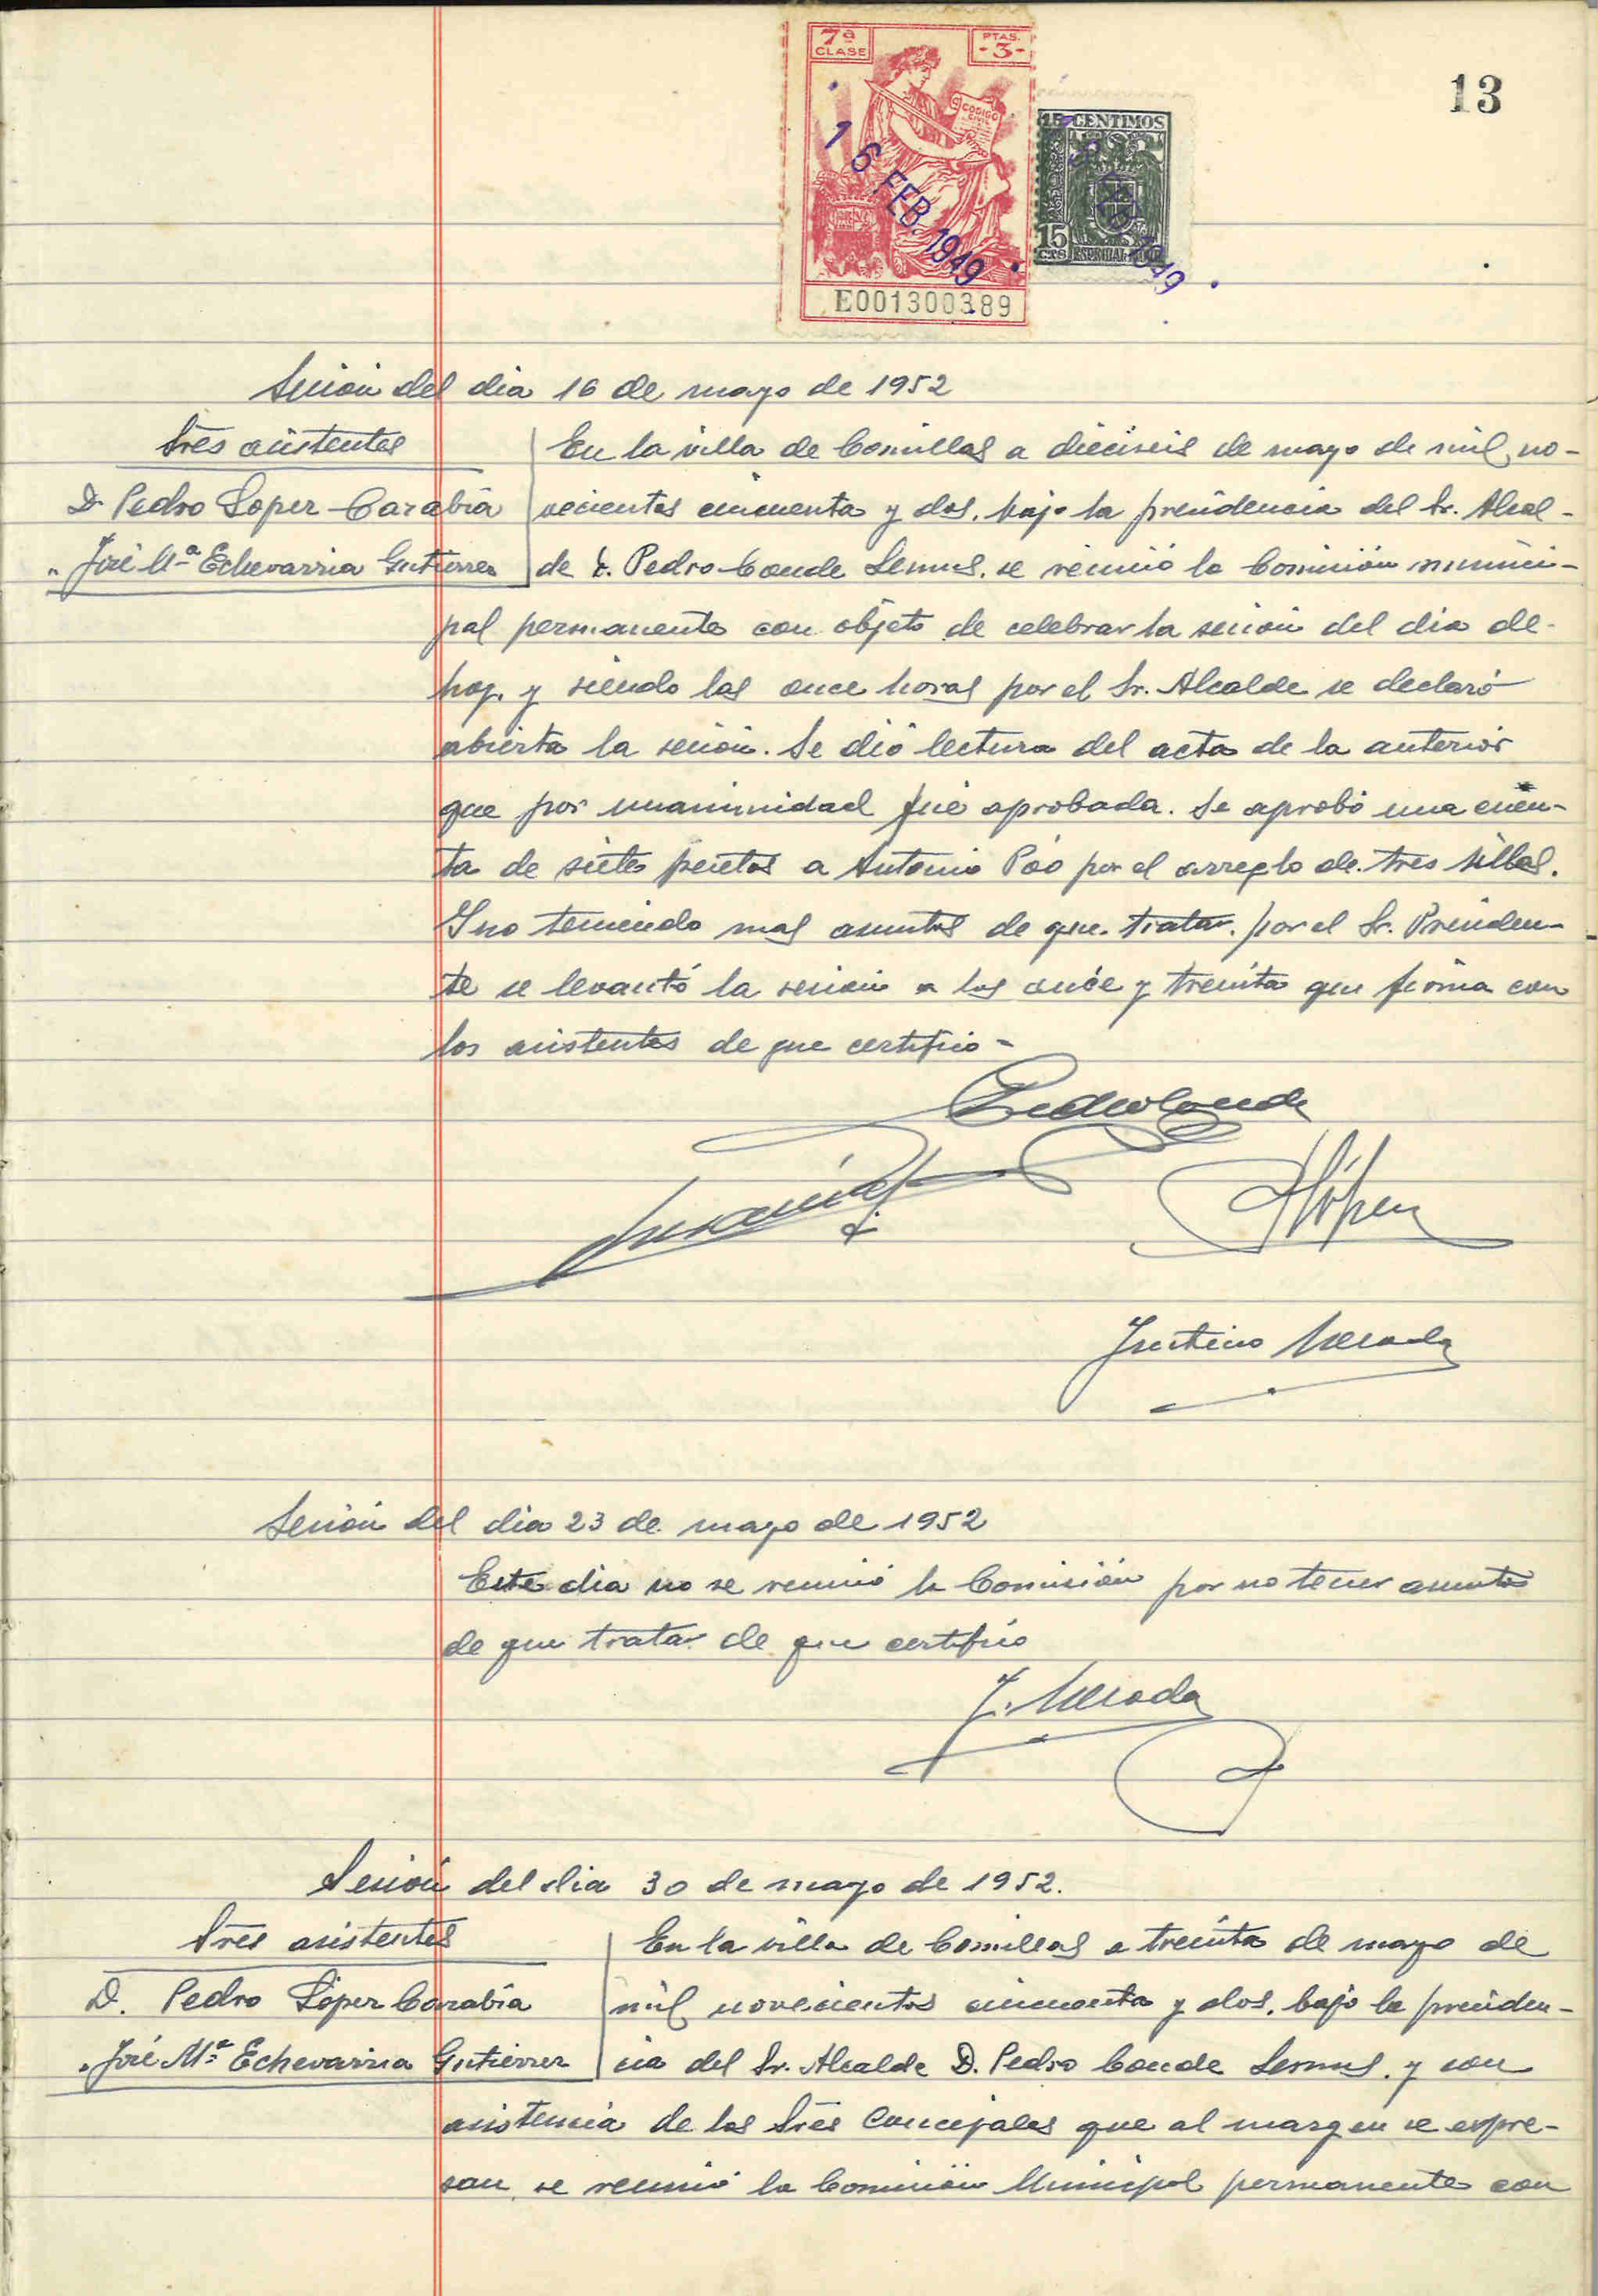 13
7ª CLASE
PTAS. -3-
CODIGO CIVIL
16 FEB. 1949
E001300389
15 CENTIMOS
FEB. 1949
15 CTS ESPECIAL MOVIL
Sesión del dia 16 de mayo de 1952
Sres asistentes
D. Pedro Lopez Carabia
" José Mª Echevarria Gutierrez
En la villa de Comillas a dieciseis de mayo de mil no-
vecientos cincuenta y dos, bajo la presidencia del Sr. Alcal-
de D. Pedro Conde Lemus, se reunió la Comisión munici-
pal permanente con objeto de celebrar la sesión del dia de
hoy, y siendo las once horas por el Sr. Alcalde se declaró
abierta la sesión. Se dió lectura del acta de la anterior
que por unanimidad fué aprobada. Se aprobó una cuen-
ta de siete pesetas a Antonio Póo por el arreglo de tres sillas.
Y no teniendo mas asuntos de que tratar, por el Sr. Presiden-
te se levantó la sesión a las once y treinta que firma con
los asistentes de que certifico -
Pedro Conde
PLópez
Justino
Sesión del dia 23 de mayo de 1952
Este dia no se reunió la Comisión por no tener asuntos
de que tratar de que certifico
J.
Sesión del dia 30 de mayo de 1952.
Sres asistentes
D. Pedro López Carabia
" José Mª Echevarria Gutierrez
En la villa de Comillas a treinta de mayo de
mil novecientos cincuenta y dos, bajo la presiden-
cia del Sr. Alcalde D. Pedro Conde Lemus, y con
asistencia de los Sres Concejales que al margen se expre-
san, se reunió la Comisión Municipal permanente con